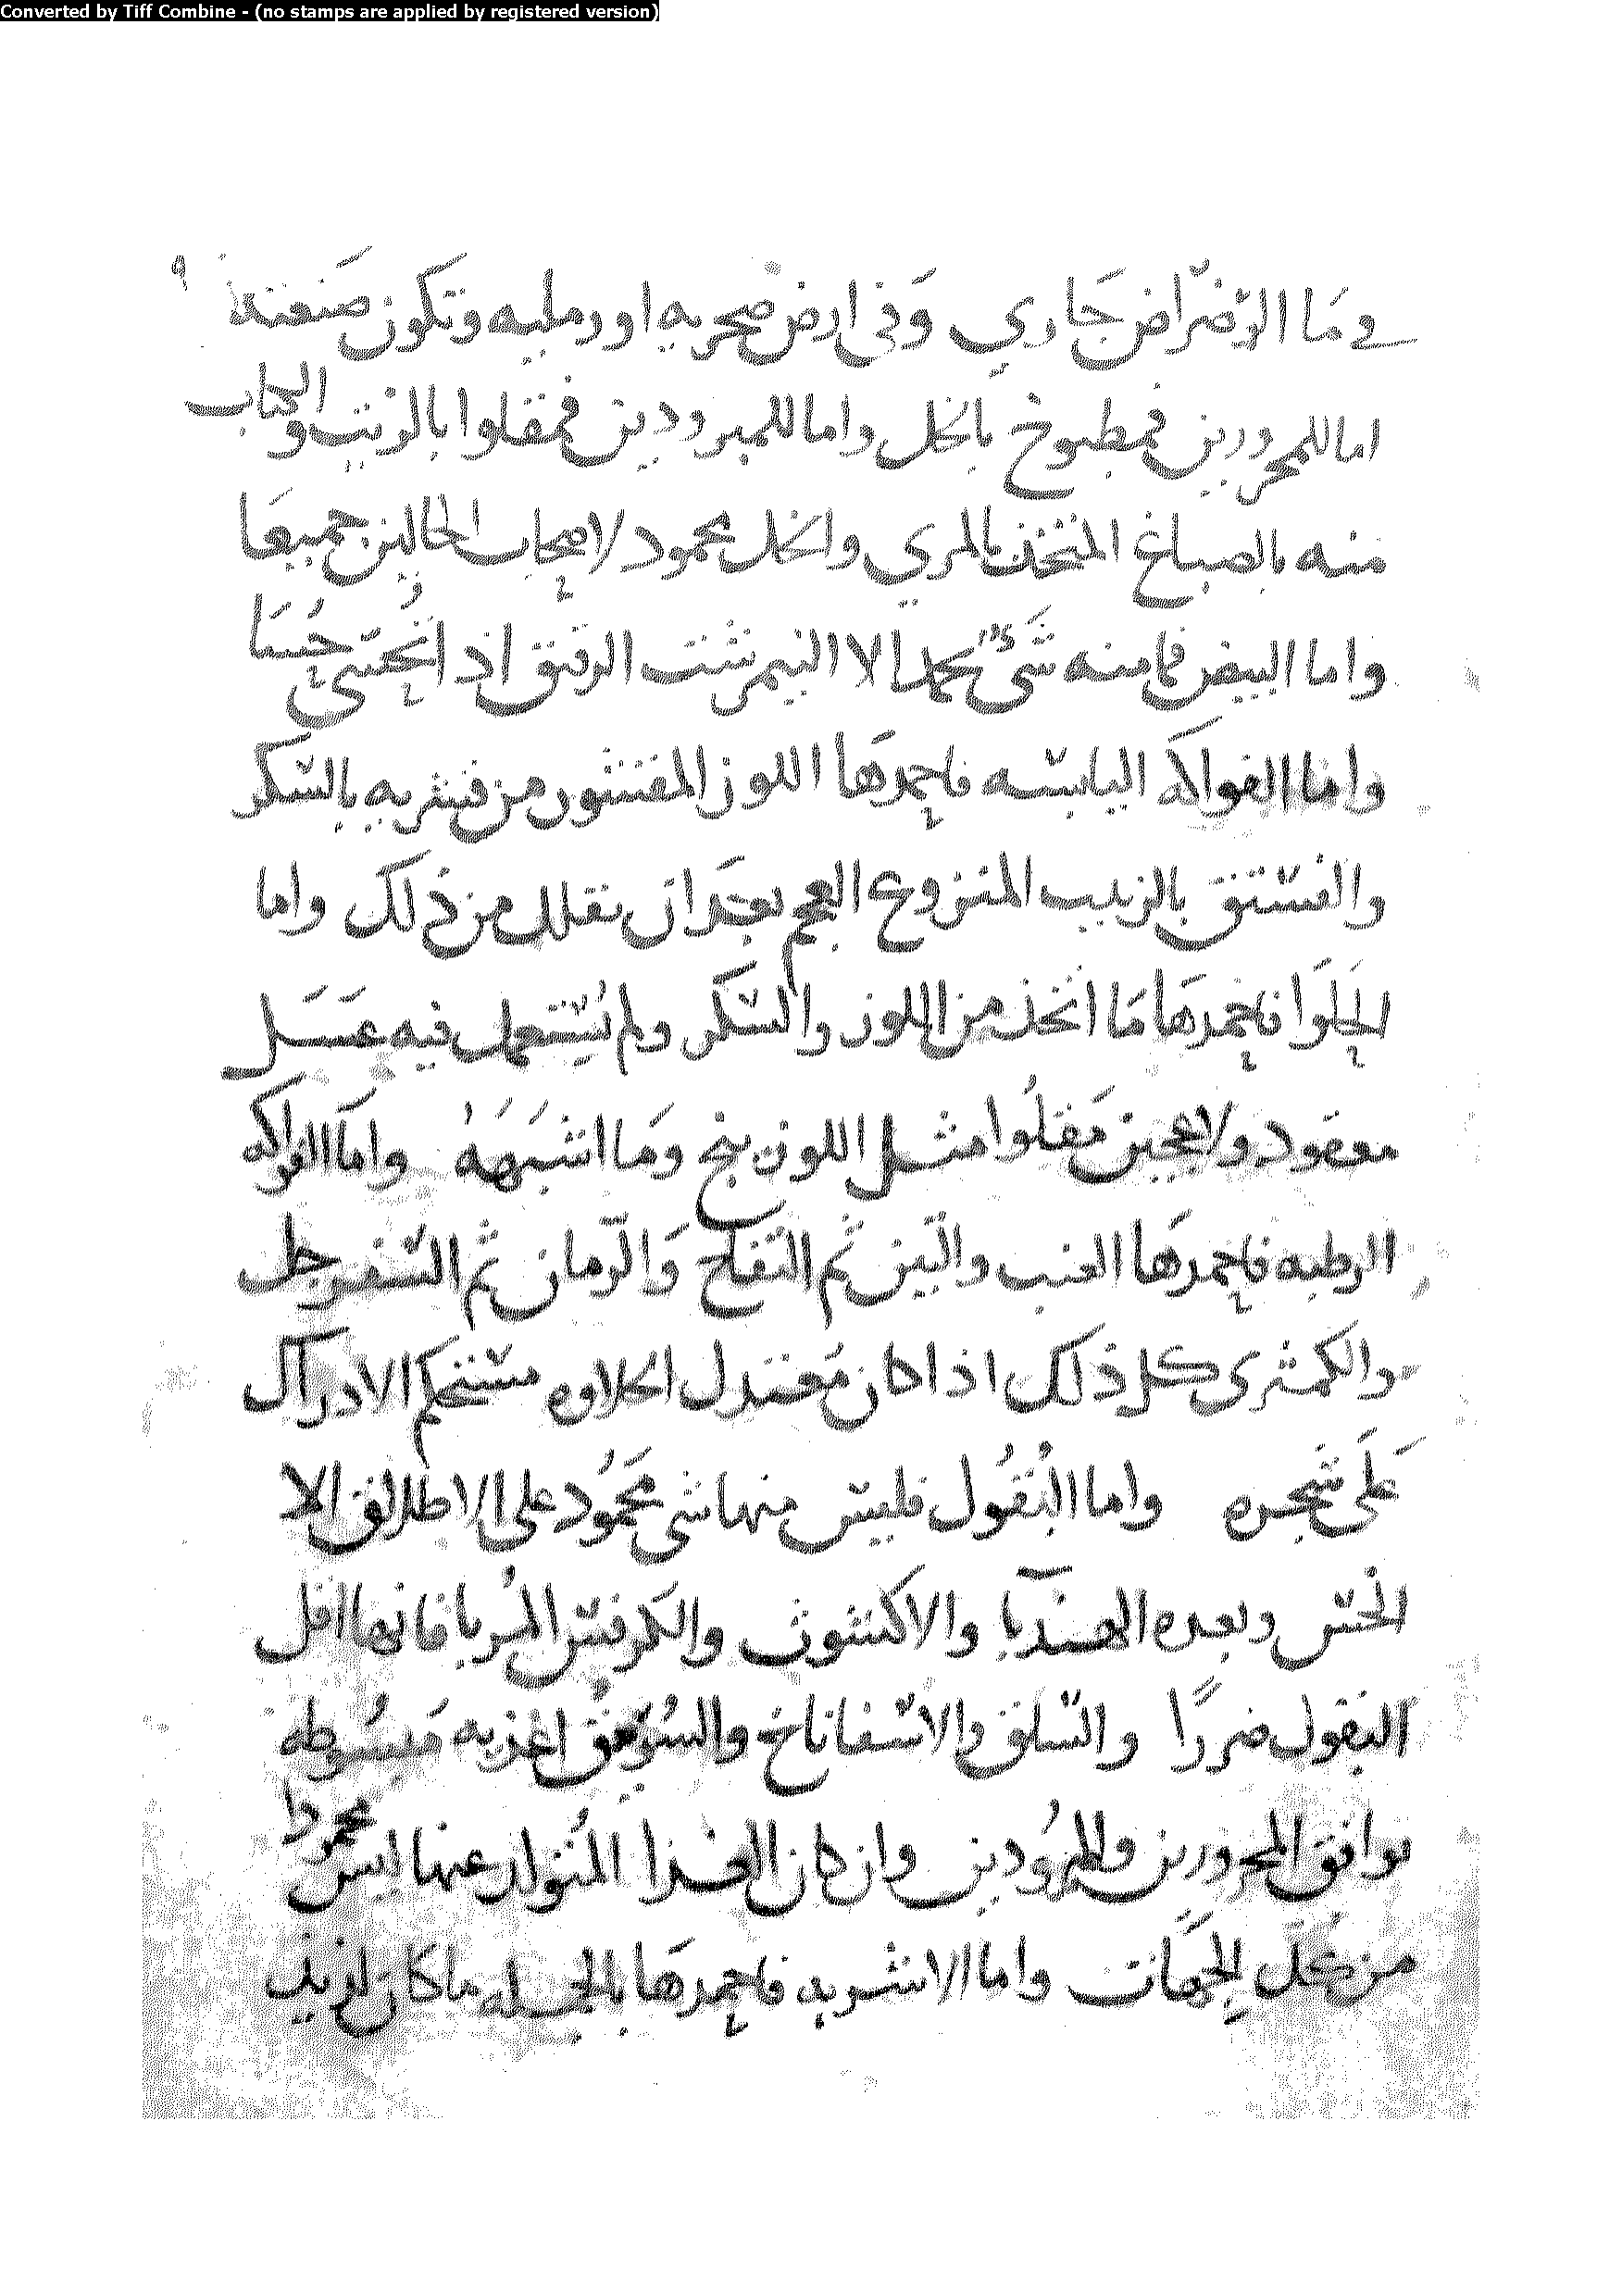 Converted by Tiff Combine - (no stamps are applied by registered version)
٩
في ما الرضراض جاري وفي ارض صخريه او رمليه وتكون صنعته
اما للمحرورين فمطبوخ بالخل واما للمبرودين فمقلوا بالزيت و
منه بالصباغ المتخذ بالمري والخل محمود لاصحاب الحالين جميعا
واما البيض فما منه شئ يحمد الا النيمرشت الرقيق اذا تحسي حسا
واما الفواكه اليابسه فاحمدها اللوز المقشور من قشريه بالسكر
والفستق بالزبيب المنزوع العجم بعد ان يقلل من ذلك واما
الحلوا فاحمدها ما اتخذ من اللوز والسكر ولم يستعمل فيه عسل
معقود ولا عجين مقلوا مثل اللوزينج وما اشبهه واما الفواكه
الرطبه فاحمدها العنب والتين ثم التفاح والرمان ثم السفرجل
والكمثرى كل ذلك اذا كان معتدل الحلاوه مستحكم الادراك
على شجره واما البقول فليس منها شي محمود على الاطلاق الا
الخس وبعده الهندبا والاكشوث والكرفس المربا فانها اقل
البقول ضررا والسلق والاسفاناخ والسرمق اغذيه متوسطه
توافق المحرورين والمبرودين وان كان الغذا المتولد عنها ليس محمودا
من كل الجهات واما الاشربه فاحمدها بالجمله ما كان لونه